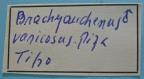 Brachyauchenus♂
varicosus. Piza
Tipo